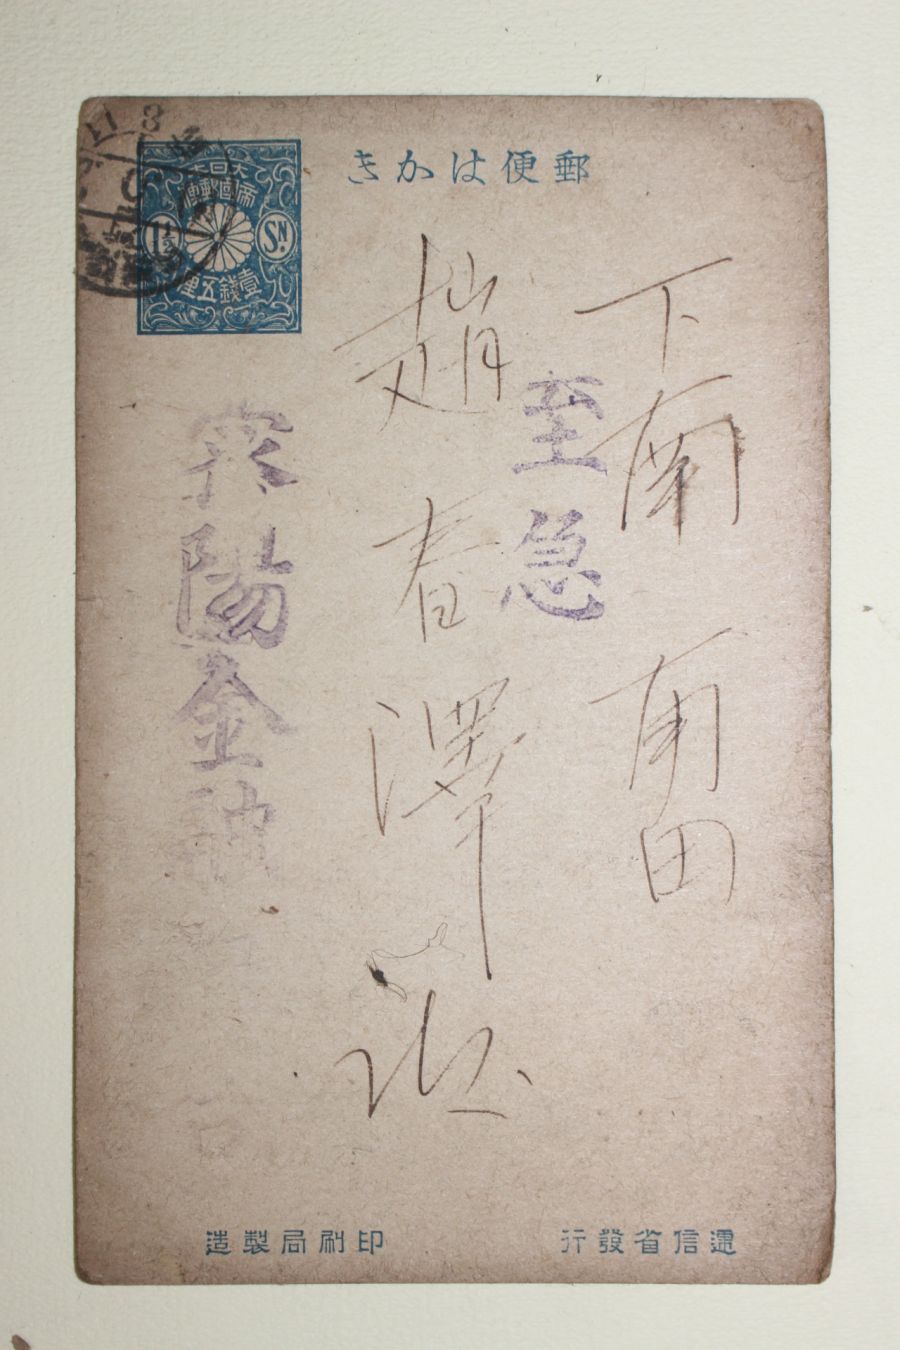 郵便はかき
大日本
帝國郵便
1½ SN.
壹錢五厘
下南 南田
至急
趙春澤 殿
陽金融
遞信省發行
印刷局製造